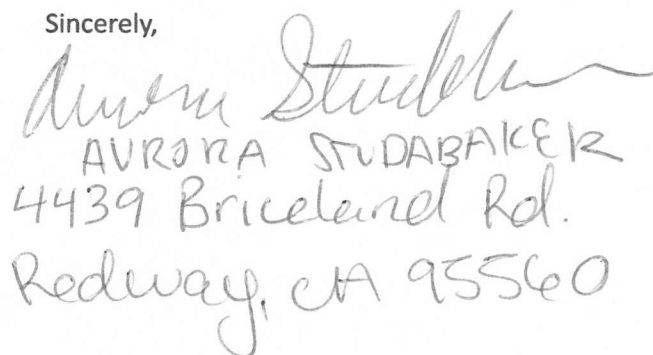 Sincerely,
Aurora Studabaker
AURORA STUDABAKER
4439 Briceland Rd.
Redway, CA 95560